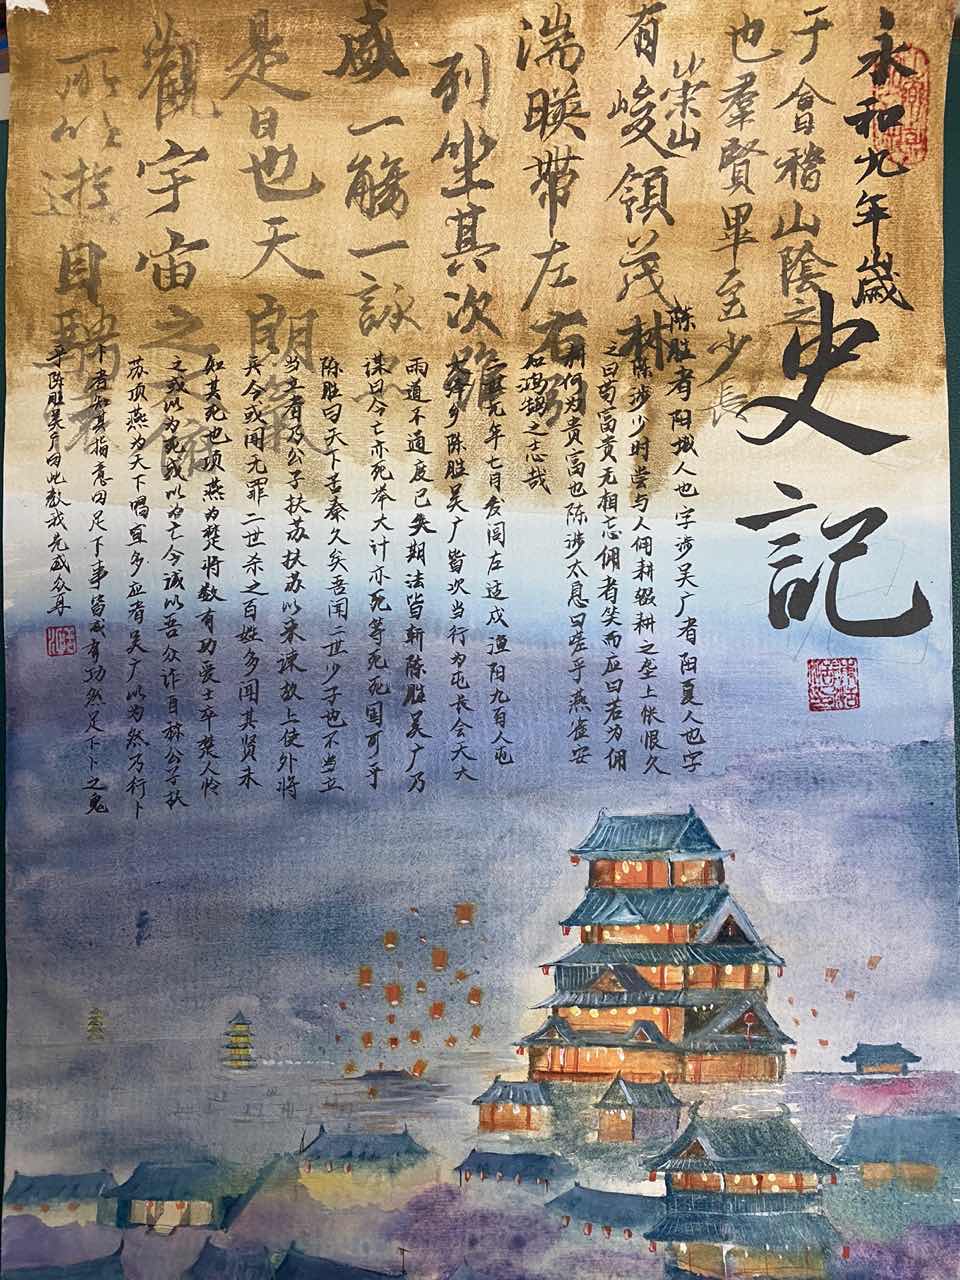 永和九年歲
于會稽山陰之
也羣賢畢至少長
有崇山峻領茂
湍暎帶左右
列坐其次雖
盛一觴一詠
是日也天朗氣
觀宇宙之
所以遊目騁
史記
陈胜者阳城人也字涉吴广者阳夏人也字
陈涉少时尝与人佣耕辍耕之垄上怅恨久
之曰苟富贵无相忘佣者笑而应曰若为佣
耕何为贵富也陈涉太息曰嗟乎燕雀安
知鸿鹄之志哉
二世元年七月发闾左适戍渔阳九百人屯
大泽乡陈胜吴广皆次当行为屯长会天大
雨道不通度已失期法皆斩陈胜吴广乃
谋曰今亡亦死举大计亦死等死死国可乎
陈胜曰天下苦秦久矣吾闻二世少子也不当立
当立者乃公子扶苏扶苏以来谏故上使外将
兵今或闻无罪二世杀之百姓多闻其贤未
知其死也项燕为楚将数有功爱士卒楚人怜
之或以为死或以为亡今诚以吾众诈自称公子扶
苏项燕为天下唱宜多应者吴广以为然乃行卜
卜者知其指意曰足下事皆成有功然足下卜之鬼
乎陈胜吴广曰此教我先威众耳